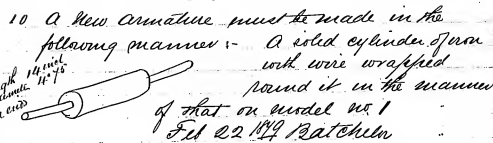 10 A New armature must be made in the
following manner :- A solid cylinder of iron
with wire wrapped
round it in the manner
of that on model no. 1
Feb 22 1879 Batchelor
14 inch
4" 75